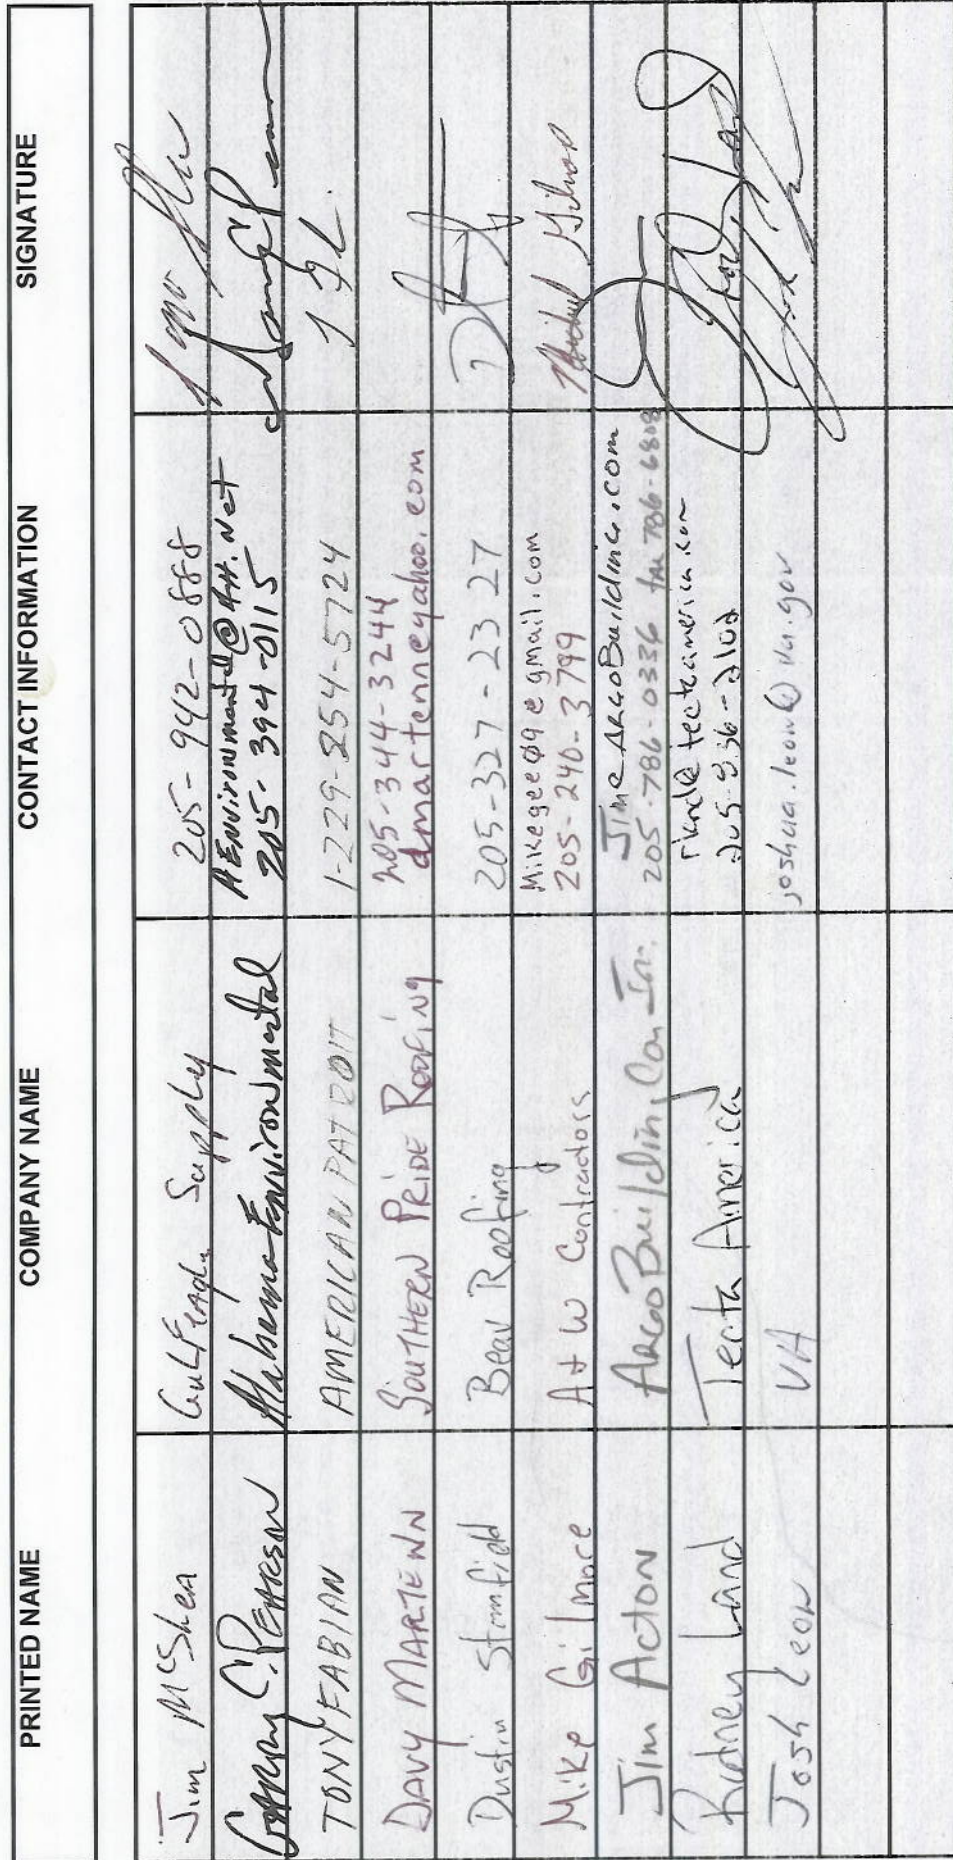 PRINTED NAME COMPANY NAME CONTACT INFORMATION SIGNATURE
Jim McShea Gulfeagle Supply 205-942-0888
C. Pearson Alabama Environmental AEnvironmental@Att.Net
205-394-0115
TONY FABIAN AMERICAN PATRIOT 1-229-854-5724
DAVY MARTENN SOUTHERN PRIDE ROOFING 205-344-3244
dmartenn@yahoo.com
Dustin Stanfield Bear Roofing 205-327-2327
Mike Gilmore A+W Contractors Mikegee09@gmail.com
205-240-3799 Michael Gilmore
Jim Acton Argo Building Co., Inc. Jim@ARGOBuilding.com
205-786-0336 fax 786-6808
Rodney Land Tecta America rland@tectaamerica.com
Josh Leon VA joshua.leon@va.gov